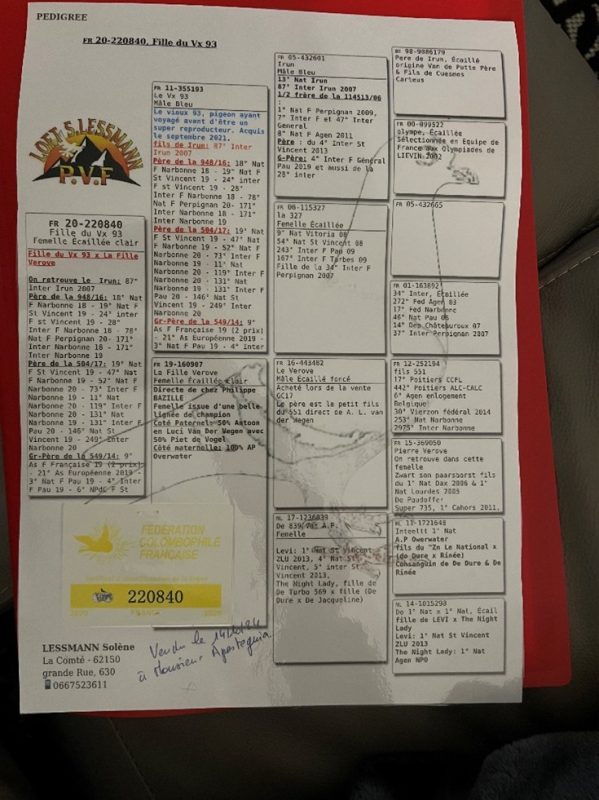 PEDIGREE
FR 20-220840, Fille du Vx 93
LOFT S.LESSMANN
P.V.F
FR 20-220840
Fille du Vx 93
Femelle Écaillée clair
Fille du Vx 93 x La Fille
Verove
On retrouve le Irun: 87°
Inter Irun 2007
Père de la 948/16: 18° Nat
F Narbonne 18 - 19° Nat F
St Vincent 19 - 24° inter
f st Vincent 19 - 28°
Inter F Narbonne 18 - 78°
Nat F Perpignan 20- 171°
Inter Narbonne 18 - 171°
Inter Narbonne 19
Père de la 504/17: 19° Nat
F St Vincent 19 - 47° Nat
F Narbonne 19 - 52° Nat F
Narbonne 20 - 73° Inter F
Narbonne 19 - 11° Nat
Narbonne 20 - 119° Inter F
Narbonne 20 - 131° Nat
Narbonne 19 - 131° Inter F
Pau 20 - 146° Nat St
Vincent 19 - 249° Inter
Narbonne 20
Gr-Père de la 549/14: 9°
As F Française 19 (2 prix)
- 21° As Européenne 2019 -
3° Nat F Pau 19 - 4° Inter
F Pau 19 - 6° NPdC F St
FR 11-355193
Le Vx 93
Mâle Bleu
Le vieux 93, pigeon ayant
voyagé avant d'être un
super reproducteur. Acquis
le septembre 2021.
fils de Irun: 87° Inter
Irun 2007
Père de la 948/16: 18° Nat
F Narbonne 18 - 19° Nat F
St Vincent 19 - 24° inter
F st Vincent 19 - 28°
Inter F Narbonne 18 - 78°
Nat F Perpignan 20- 171°
Inter Narbonne 18 - 171°
Inter Narbonne 19
Père de la 504/17: 19° Nat
F St Vincent 19 - 47° Nat
F Narbonne 19 - 52° Nat F
Narbonne 20 - 73° Inter F
Narbonne 19 - 11° Nat
Narbonne 20 - 119° Inter F
Narbonne 20 - 131° Nat
Narbonne 19 - 131° Inter F
Pau 20 - 146° Nat St
Vincent 19 - 249° Inter
Narbonne 20
Gr-Père de la 549/14: 9°
As F Française 19 (2 prix)
- 21° As Européenne 2019 -
3° Nat F Pau 19 - 4° Inter
FR 19-160907
La Fille Verove
Femelle Écaillée clair
Directe de chez Philippe
BAZILLE
Femelle issue d'une belle
lignée de champion
Coté Paternel- 50% Antoon
en Luci Van Der Wegen avec
50% Piet de Vogel
Côté maternelle: 100% AP
Overwater
FR 05-432601
Irun
Mâle Bleu
13° Nat Irun
87° Inter Irun 2007
1/2 frère de la 114513/06
:
1° Nat F Perpignan 2009,
7° Inter F et 47° Inter
General
8° Nat F Agen 2011
Père : du 4° Inter St
Vincent 2013
G-Père: 4° Inter F Général
Pau 2019 et aussi de la
28° inter
FR 06-115327
la 327
Femelle Écaillée
9° Nat Vitoria 08
54° Nat St Vincent 08
243° Inter F Pau 09
167° Inter F Tarbes 09
Fille de la 34° Inter F
Perpignan 2007
FR 16-443482
Le Verove
Mâle Écaillé forcé
Acheté lors de la vente
CC17
Le père est le petit fils
du 551 direct de A. L. van
der Wegen
NL 17-1236839
De 839, Vat A.P.
Femelle
Levi: 1° Nat St Vincent
ZLU 2013, 4° Nat St
Vincent, 5° inter St
Vincent 2013,
The Night Lady, fille de
De Turbo 569 x fille (De
Dure x De Jacqueline)
BE 98-9086179
Père de Irun, Écaillé
origine Van de Putte Père
& Fils de Cuesmes
Carteus
FR 00-099522
olympe, Écaillée
Sélectionnée en Equipe de
France aux Olympiades de
LIEVIN 2002
FR 05-432665
FR 01-163892
34° Inter, Écaillée
272° Fed Agen 03
17° Fed Narbonne
46° Nat Pau 05
14° Dem Châteauroux 07
37° Inter Perpignan 2007
FR 12-252194
fils 551
17° Poitiers CCFL
442° Poitiers ALC-CALC
6° Agen enlogement
Belgique
30° Vierzon fédéral 2014
253° Nat Narbonne
2975° Inter Narbonne
FR 15-369050
Pierre Verove
On retrouve dans cette
femelle
Zwart son paarsborst fils
du 1° Nat Dax 2006 & 1°
Nat Lourdes 2009
De Paudoffer
Super 735, 1° Cahors 2011,
NL 11-1721648
Inteeltt 1° Nat
A.P Overwater
fils du "Zn Le National x
(do Dure x Rinée)
Consanguin de De Dure & De
Rinée
NL 14-1015298
Do 1° Nat x 1° Nat, Écail
fille de LEVI x The Night
Lady
Levi: 1° Nat St Vincent
ZLU 2013
The Night Lady: 1° Nat
Agen NPO
FÉDÉRATION
COLOMBOPHILE
FRANÇAISE
220840
LESSMANN Solène
La Comté - 62150
grande Rue, 630
0667523611
Vendu le
à Monsieur